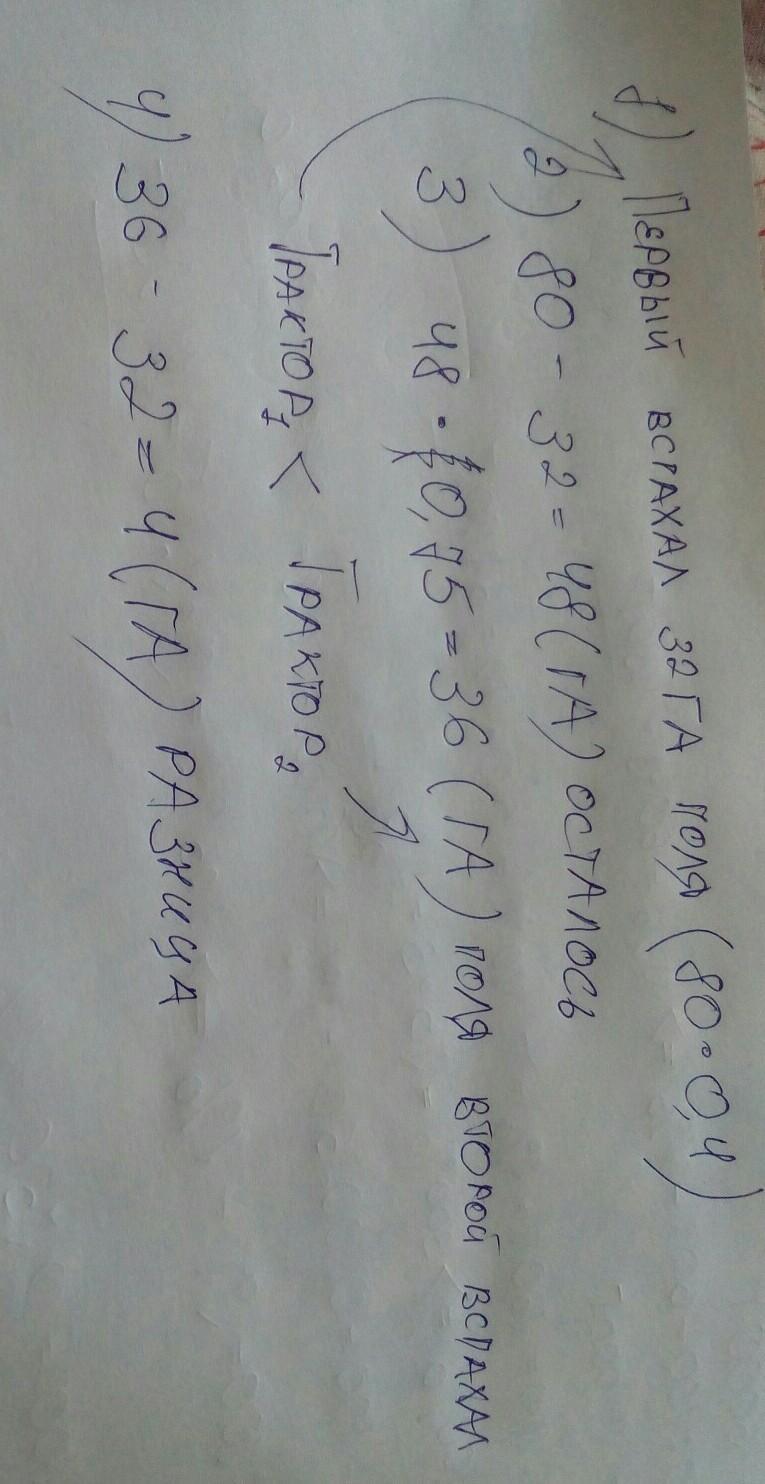 1) Первый вспахал 32га поля (80∘0,4)
2) 80 - 32 = 48 (га) осталось
3) 48 · 0,75 = 36 (га) поля второй вспахал
Трактор₁ < Трактор₂
4) 36 - 32 = 4 (га) разница